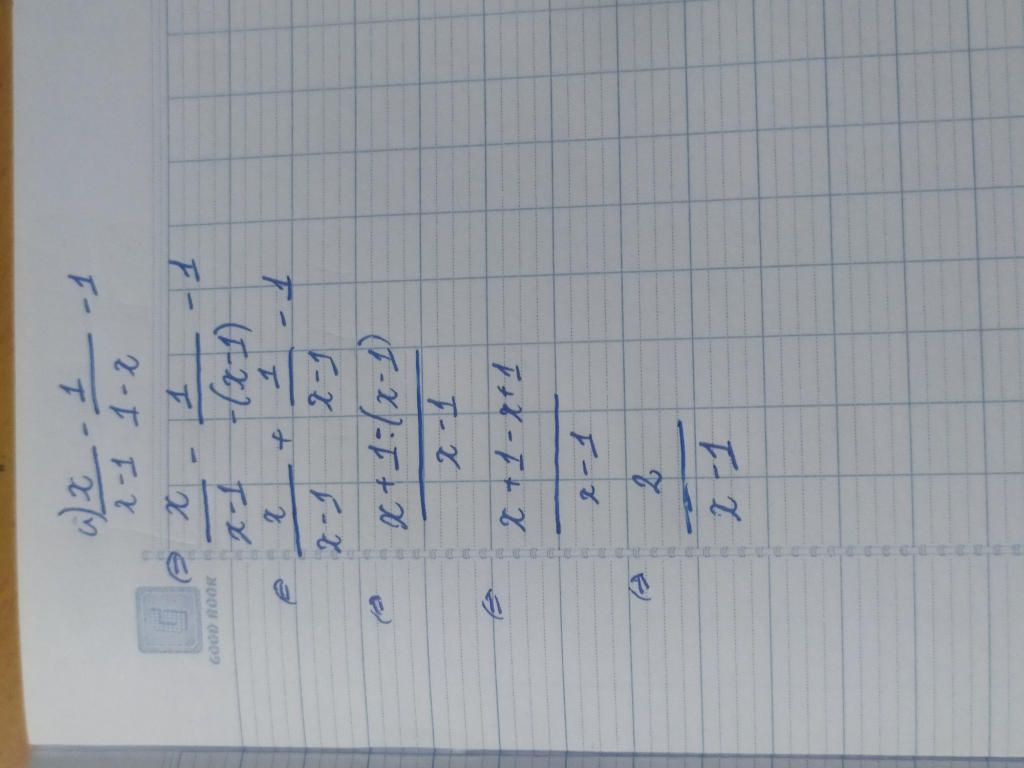 a) x/(x-1) - 1/(1-x) - 1
⇔ x/(x-1) - 1/(-(x-1)) - 1
⇔ x/(x-1) + 1/(x-1) - 1
⇔ (x+1-(x-1))/(x-1)
⇔ (x+1-x+1)/(x-1)
⇔ 2/(x-1)
GOOD BOOK